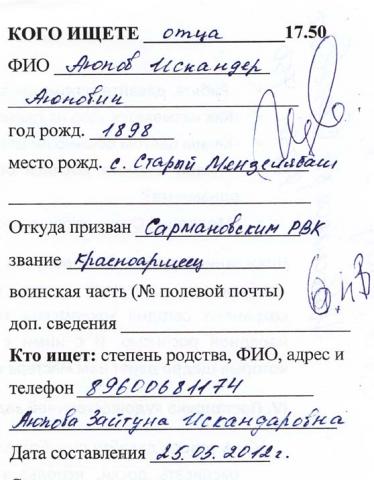 КОГО ИЩЕТЕ отца 17.50
ФИО Аюпов Искандер
Аюпович
год рожд. 1898
место рожд. с. Старый Мензелябаш
Откуда призван Сармановским РВК
звание красноармеец
воинская часть (№ полевой почты)
доп. сведения
Кто ищет: степень родства, ФИО, адрес и
телефон 89600681174
Аюпова Зайтуна Искандаровна
Дата составления 25.05.2012г.